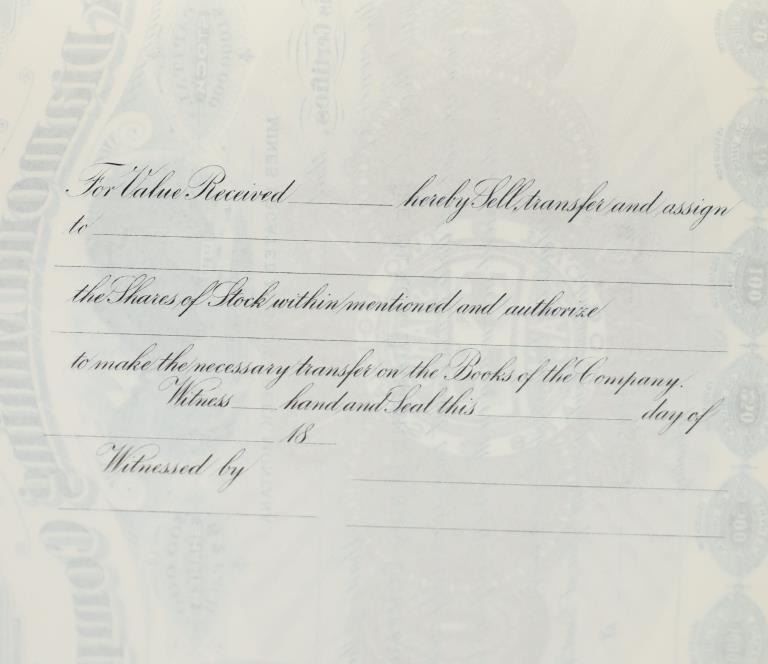 For Value Received hereby Sell, transfer and assign
to
the Shares of Stock within mentioned and authorize
to make the necessary transfer on the Books of the Company.
Witness hand and Seal this day of
18
Witnessed by